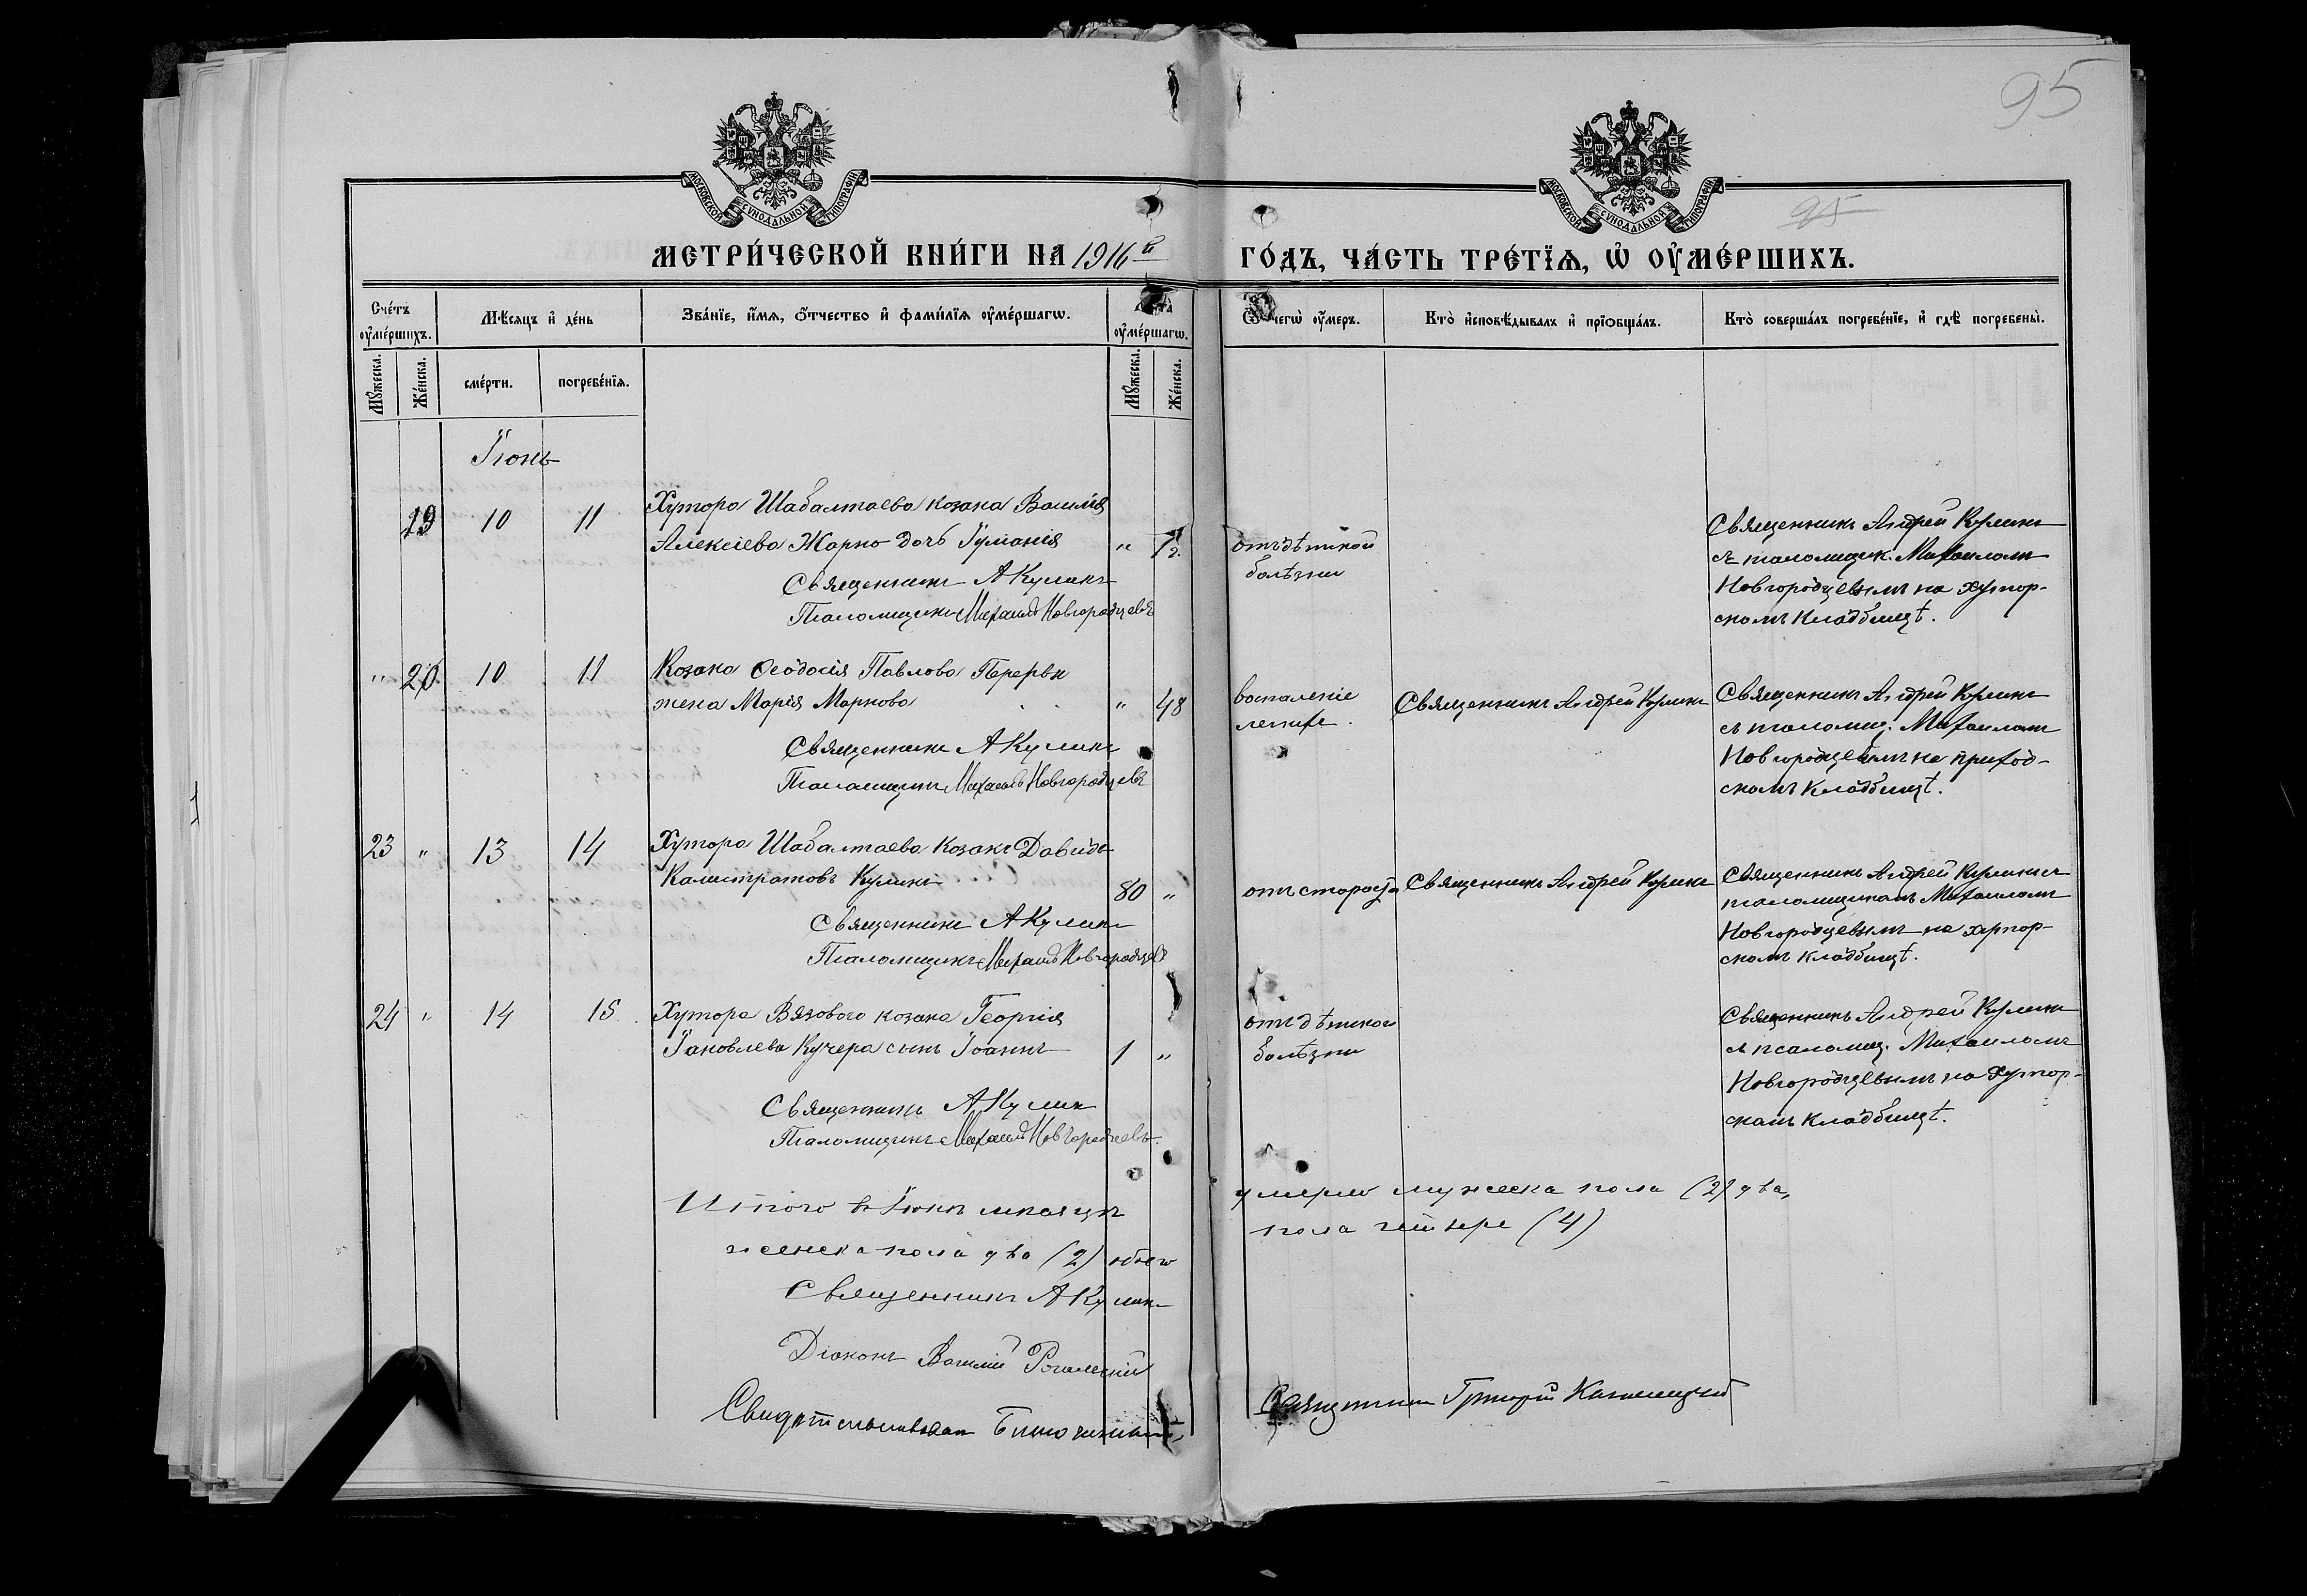 95
МОСКОВСКОЙ СѴНОДАЛЬНОЙ ТИПОГРАФІИ
МОСКОВСКОЙ СѴНОДАЛЬНОЙ ТИПОГРАФІИ
95
МЕТРИ́ЧЕСКОЙ КНИ́ГИ НА 1916й
ГО́ДЪ, ЧА́СТЬ ТРЕ́ТЇѦ, Ѡ҆ ОУ҆МЕ́РШИХЪ.
Сче́тъ оу҆ме́ршихъ.
Мѣ́сяцъ и҆ де́нь
Зва́нїе, и҆́мѧ, ѻ҆́тчество и҆ фами́лїѧ оу҆ме́ршагѡ.
оу҆ме́ршагѡ.
Ѿ чегѡ̀ оу҆́меръ.
Кто̀ и҆сповѣ́дывалъ и҆ прїѡбща́лъ.
Кто̀ соверша́лъ погребе́нїе, и҆ гдѣ̀ погребены̀.
Мꙋ́жеска.
Же́нска.
сме́рти.
погребе́нїѧ.
Мꙋ́жеска.
Же́нска.
Іюнь
19 10 11
Хутора Шабалтаева козака Василія
Алексіева Жарко дочь Іуліанія
" 1/2
Священникъ А Куликъ
Псаломщикъ Михаилъ Новгородцевъ
отъ дѣтской
болѣзни
Священникъ Андрей Куликъ
съ псаломщик. Михаиломъ
Новгородцевымъ на хутор-
скомъ кладбищѣ.
" 20 10 11
Козака Ѳеодосія Павлова Перервы
жена Марія Маркова
" 48
Священникъ А Куликъ
Псаломщикъ Михаилъ Новгородцевъ
воспаленіе
легкихъ.
Священникъ Андрей Куликъ
Священникъ Андрей Куликъ
съ псаломщ. Михаиломъ
Новгородцевымъ на приход-
скомъ кладбищѣ.
23 " 13 14
Хутора Шабалтаева козакъ Давидъ
Калистратовъ Куликъ
80 "
Священникъ А Куликъ
Псаломщикъ Михаилъ Новгородцевъ
отъ старости
Священникъ Андрей Куликъ
Священникъ Андрей Куликъ съ
псаломщикомъ Михаиломъ
Новгородцевымъ на хутор-
скомъ кладбищѣ.
24 " 14 15
Хутора Вязового козака Георгія
Іаковлева Кучера сынъ Іоаннъ
1 "
Священникъ А Кулик
Псаломщикъ Михаилъ Новгородцевъ.
отъ дѣтской
болѣзни
Священникъ Андрей Куликъ
съ псаломщ. Михаиломъ
Новгородцевымъ на хутор-
скомъ кладбищѣ.
Итого въ Іюнѣ мѣсяцѣ
умерло мужеска пола (2) два,
женска пола два (2) обоего
пола четыре (4)
Священникъ А Кулик
Діаконъ Василій
Свидѣтельствовал Благочинный,
Священникъ Григорій